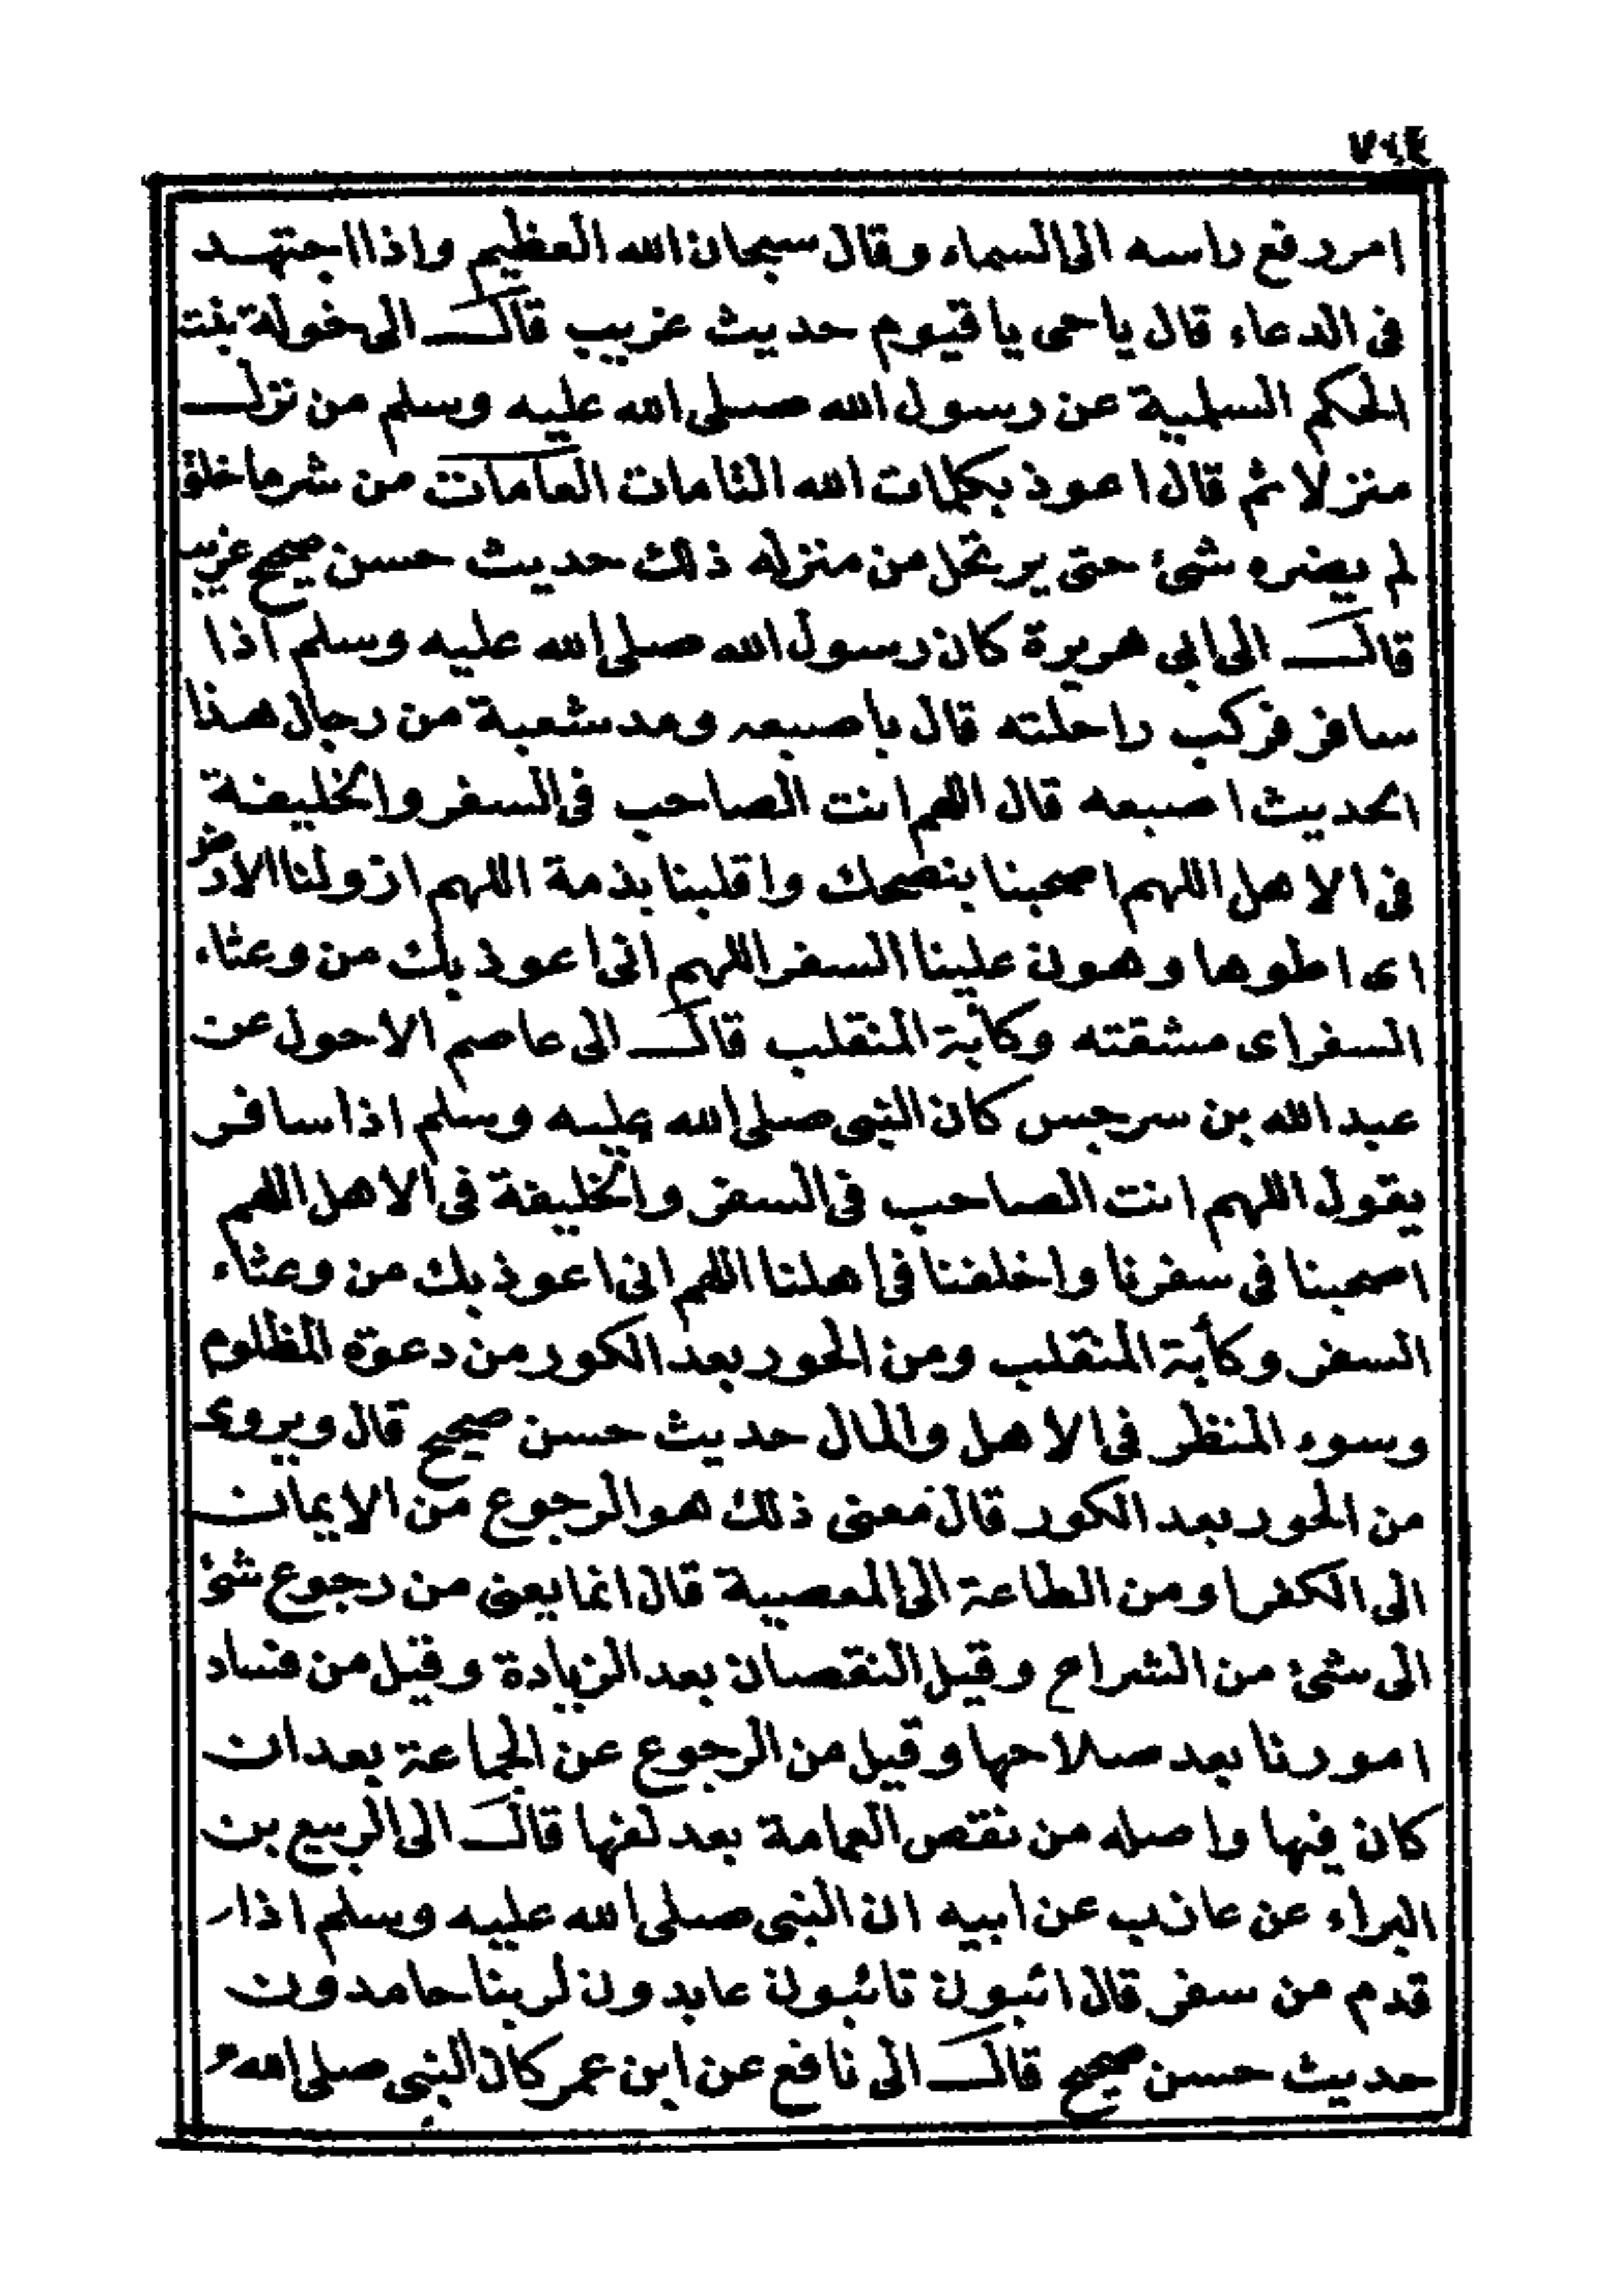 امر رفع راسه الى السماء وقال سبحان الله العظيم واذا اجتهد
فى الدعاء قال ياحى ياقيوم حديث غريب قال الى خولة بنت
الحكم السلمية عن رسول الله صلى الله عليه وسلم من نزل
منزلا ثم قال اعوذ بكلمات الله التامات العامات من شر ما خلق
لم يضره شئ حتى يرتحل من منزله ذلك حديث حسن صحيح غريب
قال الى ابى هريرة كان رسول الله صلى الله عليه وسلم اذا
سافر فركب راحلته قال باصبعه ومد شعبة من رجال هذا
الحديث اصبعه قال اللهم انت الصاحب فى السفر والخليفة
فى الاهل اللهم اصحبنا بنصحك واقلبنا بذمة اللهم ازو لنا الارض
اى اطوها وهون علينا السفر اللهم انى اعوذ بك من وعثاء
السفر اى مشقته وكأبة المنقلب قال الى عاصم الاحول عن
عبد الله بن سرجس كان النبى صلى الله عليه وسلم اذا سافر
يقول اللهم انت الصاحب فى السفر والخليفة فى الاهل اللهم
اصحبنا فى سفرنا واخلفنا فى اهلنا اللهم انى اعوذ بك من وعثاء
السفر وكأبة المنقلب ومن الحور بعد الكور من دعوة المظلوم
وسوء المنظر فى الاهل والمال حديث حسن صحيح قال ويروى
من الحور بعد الكور قال معنى ذلك هو الرجوع من الايمان
الى الكفر او من الطاعة الى المعصية قال انما يعنى من رجوع شئ
الى شئ من الشراح وقيل النقصان بعد الزيادة وقيل من فساد
امورنا بعد صلاحها وقيل من الرجوع عن الجماعة بعد ان
كان فيها واصله من نقص العمامة بعد لفها قال الى الربيع بن
البراء عن عازب عن ابيه ان النبى صلى الله عليه وسلم اذا
قدم من سفر قال ائبون تائبون عابدون لربنا حامدون
حديث حسن صحيح قال الى نافع عن ابن عمر كان النبى صلى الله